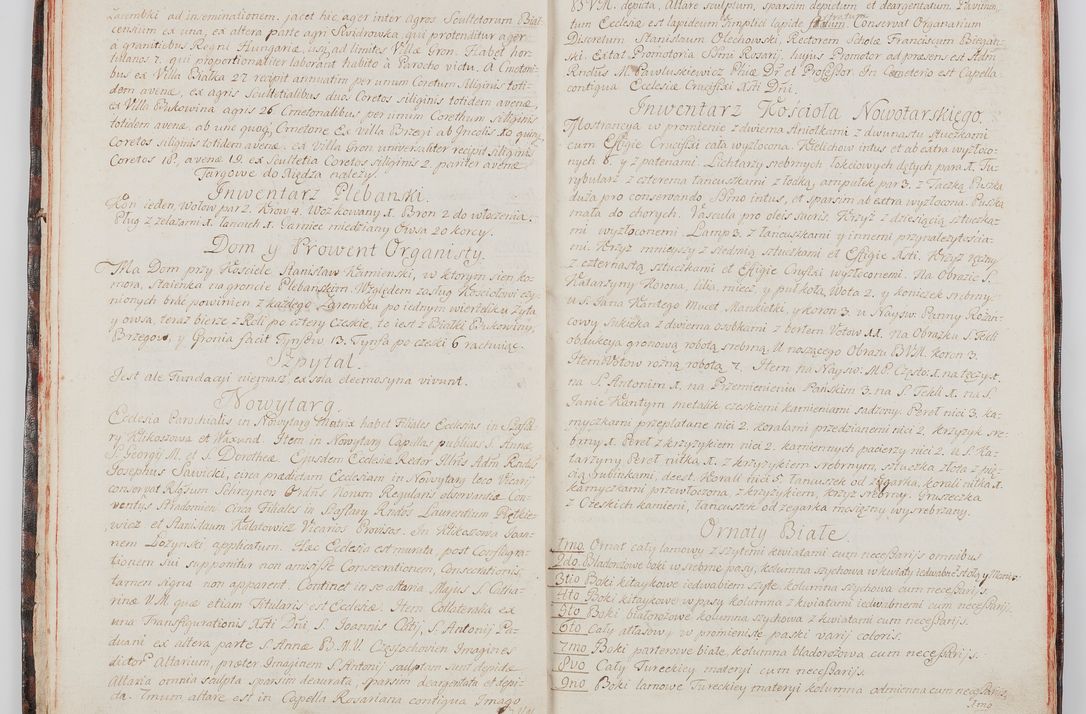 Zarembki ad inseminationem. jacet hic ager inter agros Scultetorum Biał-
censium ex una, ex altera parte agri Swidrowka, qui protenditur ager
a granitiebus Regni Hungariæ, usq. ad limites Villæ Gron. Habet hor-
tulanos 7. qui proportionaliter laborant habito à Parocho victu. A Cmetoni-
bus ex Villa Białka 27 recipit annuatim per unum Coretum Siliginis toti-
dem avenæ, ex agris Scultetialibus duos Coretos siliginis totidem avenæ,
ex Villa Bukowina agris 26. Cmetonalibus per unum Corethum siliginis
totidem avenæ. ab uno quoq. Cmetone Ex Villa Brzegi ab Jncolis 10 quinq.
Coretos siliginis totidem avenæ. ex Villa Gron universaliter recipit siliginis
Coretos 18, avenæ 19. ex Scultetia Coretos siliginis 2. pariter avenæ
Targowe do Xiędza należy.
Inwentarz Plebanski.
Kon ieden, Wołow par 2. Krow 4. Woz kowany 1. Bron 2 do włoczenia.
Pług z żelazami 1. łancuch 1. Garniec miedziany Owsa 20 korcy.
Dom y Prowent Organisty.
Ma Dom przy Kościele Stanisław Kamienski, w ktorym sien ko-
mora, Staienka na groncie Plebanskim. Względem zasług Kościołowi czy-
nionych brać powinien z każdego Zarembku po iednym wiertelik u Zyta
y owsa, teraz bierze z Roli po cztery Czeskie, to iest z Białki Bukowiny,
Brzegow, y Gronia facit Tynfow 13. Tynfa po czeski 6 rachuiąc.
Szpytal.
Jest ale Fundacyi niemasz ex sola eleemosyna vivunt.
Nowytarg.
Ecclesia Parochialis in Nowytarg Matrix habet Filiales Ecclesias in Szafla-
ry Klikoszowa et Waxund. Item in Nowytarg Capellas publicas S. Annæ,
S. Georgij M. et S. Dorotheæ Ejusdem Ecclesiæ Rector Illris Adm. Rndus
Josephus Sawicki, circa prædictam Ecclesiam in Nowytarg loco Vicarij
conservat Rlgsum Schreyner Ordnis Norum Regularis observantiæ Con-
ventus Stradomien. Circa Filiales in Szaflary Rndos Laurentium Piętkie-
wicz et Stanislaum Kułatowicz Vicarios Bronsos. In Klikoszowa Joan-
nem Łozynski applicatum. Hæc Ecclesia est murata, post Conflagra-
tionem sui supponitur non amisisse Consecrationem, Consecrationis
tamen signa non apparent. Continet in se altaria Majus S. Catha-
rinæ V. M. quæ etiam Titularis est Ecclesiæ. Item Collateralia ex
una Transfigurationis Xsti Dni S. Joannis Cātij, S. Antonij Pa-
duani ex altera parte S. Annæ B. M. V. Częstochovien Imagines
dictor. Altarium, præter Imaginem S. Antonij sculptam sunt depictæ.
Altaria omnia sculpta sparsim deaurata, sparsim deargentata et depi-
cta. Imum altare est in Capella Rosariana contigua Imago
B V. M. deputa, Altare sculptum, sparsim depictum et deargentatum. Pavimen-
tum Ecclesiæ est lapideum ex simplici lapide stratum. Conservat Organarium
Discretum Stanislaum Olechowski, Rectorem Scholæ Franciscum Biegan-
ski. Extat Promotoria Ssmi Rosarij, hujus Promotor ad præsens est Adm.
Rndus M. Pawluskiewicz Phiæ Dr. et Professor. In Cæmeterio est Capella
contigua Ecclesiæ Crucifixi Xsti Dni.
Inwentarz Kościoła Nowotarskiego.
Mostrancya w promienie z dwiema Aniołkami z dwunastu sztuczkami
cum Effigie Crucifixi cała wyzłocona. Kielichow intus et ab extra wyzłoco-
nych 8. y z patenami. Lichtarzy srebrnych łokciowych dętych para 1. Tu-
rybularz z czterema łancuszkami z łodką, ampułek par 3. z Taczką Puszka
duża pro conservando SSmo intus, et sparsim ab extra wyzłocona. Puszka
mała do chorych. Vascula pro oleis sacris. Krzyż z dziesiącią sztuczka-
mi wyzłoconemi. Lamp 3. z łancuszkami y innemi przynależytościa-
mi. Krzyż mnieyszy z siedmią sztuczkami et Effigie Xsti. Krzyż ręczny
z czternastą sztuczkami et Effigie Crucifixi wyzłoconemi. Na Obrazie S.
Katarzyny Korona, lilia, miecz, y puł koła, Wota 2. y koniczek srebrny
u S. Jana Kantego Mucet, Mankietki, y koron 3. u Nayśw. Panny Różań-
cowy Sukięka z dwiema osobkami z bertem Wotow 11. Na Obrazku S. Tekli
obdukcya gronową robotą srebrną. U noszącego Obrazu B.V.M. koron 3.
Item Wotow rożną robotą 7. Item na Nayśw: M.P. Często. 1. na tęczy 1.
na S. Antonim 1. na Przemienieniu Pańskim 3. na S. Tekli 1. na S.
Janie Kantym metalik, czeskiemi kamieniami sadzony. Pereł nici 3. ka-
myczkami przeplatane nici 2. koralami przedzianemi nici 2. krzyzyk sre-
brny 1. Pereł z krzyżykiem nici 2. kamiennych pacierzy nici 2. U S. Ka-
tarzyny Pereł nitka 1. z krzyżykiem srebrnym, sztuczka złota z pię-
cią rubinkami, deest. Korali nici 5. łancuszek od zegarka, korali nitka 1.
kamyszkami przewłoczona, z krzyżykiem, krzyż srebrny. Gruszeczka
z Czeskich kamieni, łancuszek od zegarka mosiężny wysrebrzany.
Ornaty Białe.
1mo Ornat cały lamowy z szytemi kwiatami cum necessarijs omnibus
2do Bladorożowe boki w srebrne pasy, kolumna szychowa w kwiaty iedwabne stołą y Manip.
3tio Boki kitaykowe iedwabiem szyte kolumna szychowa cum necessarijs.
4to Boki kitaykowe w pasy kolumna z kwiatami iedwabnemi cum necessarijs.
5to Boki białorożowe kolumna szychowa z kwiatami cum necessarijs.
6to Cały atłasowy w promieniste paski varij coloris.
7mo Boki parterowe białe kolumna bladorożowa cum necessarijs.
8vo Cały Tureckiey materyi cum necessarijs.
9no Boki lamowe Tureckiey materyi kolumna odmienna cum necessarijs